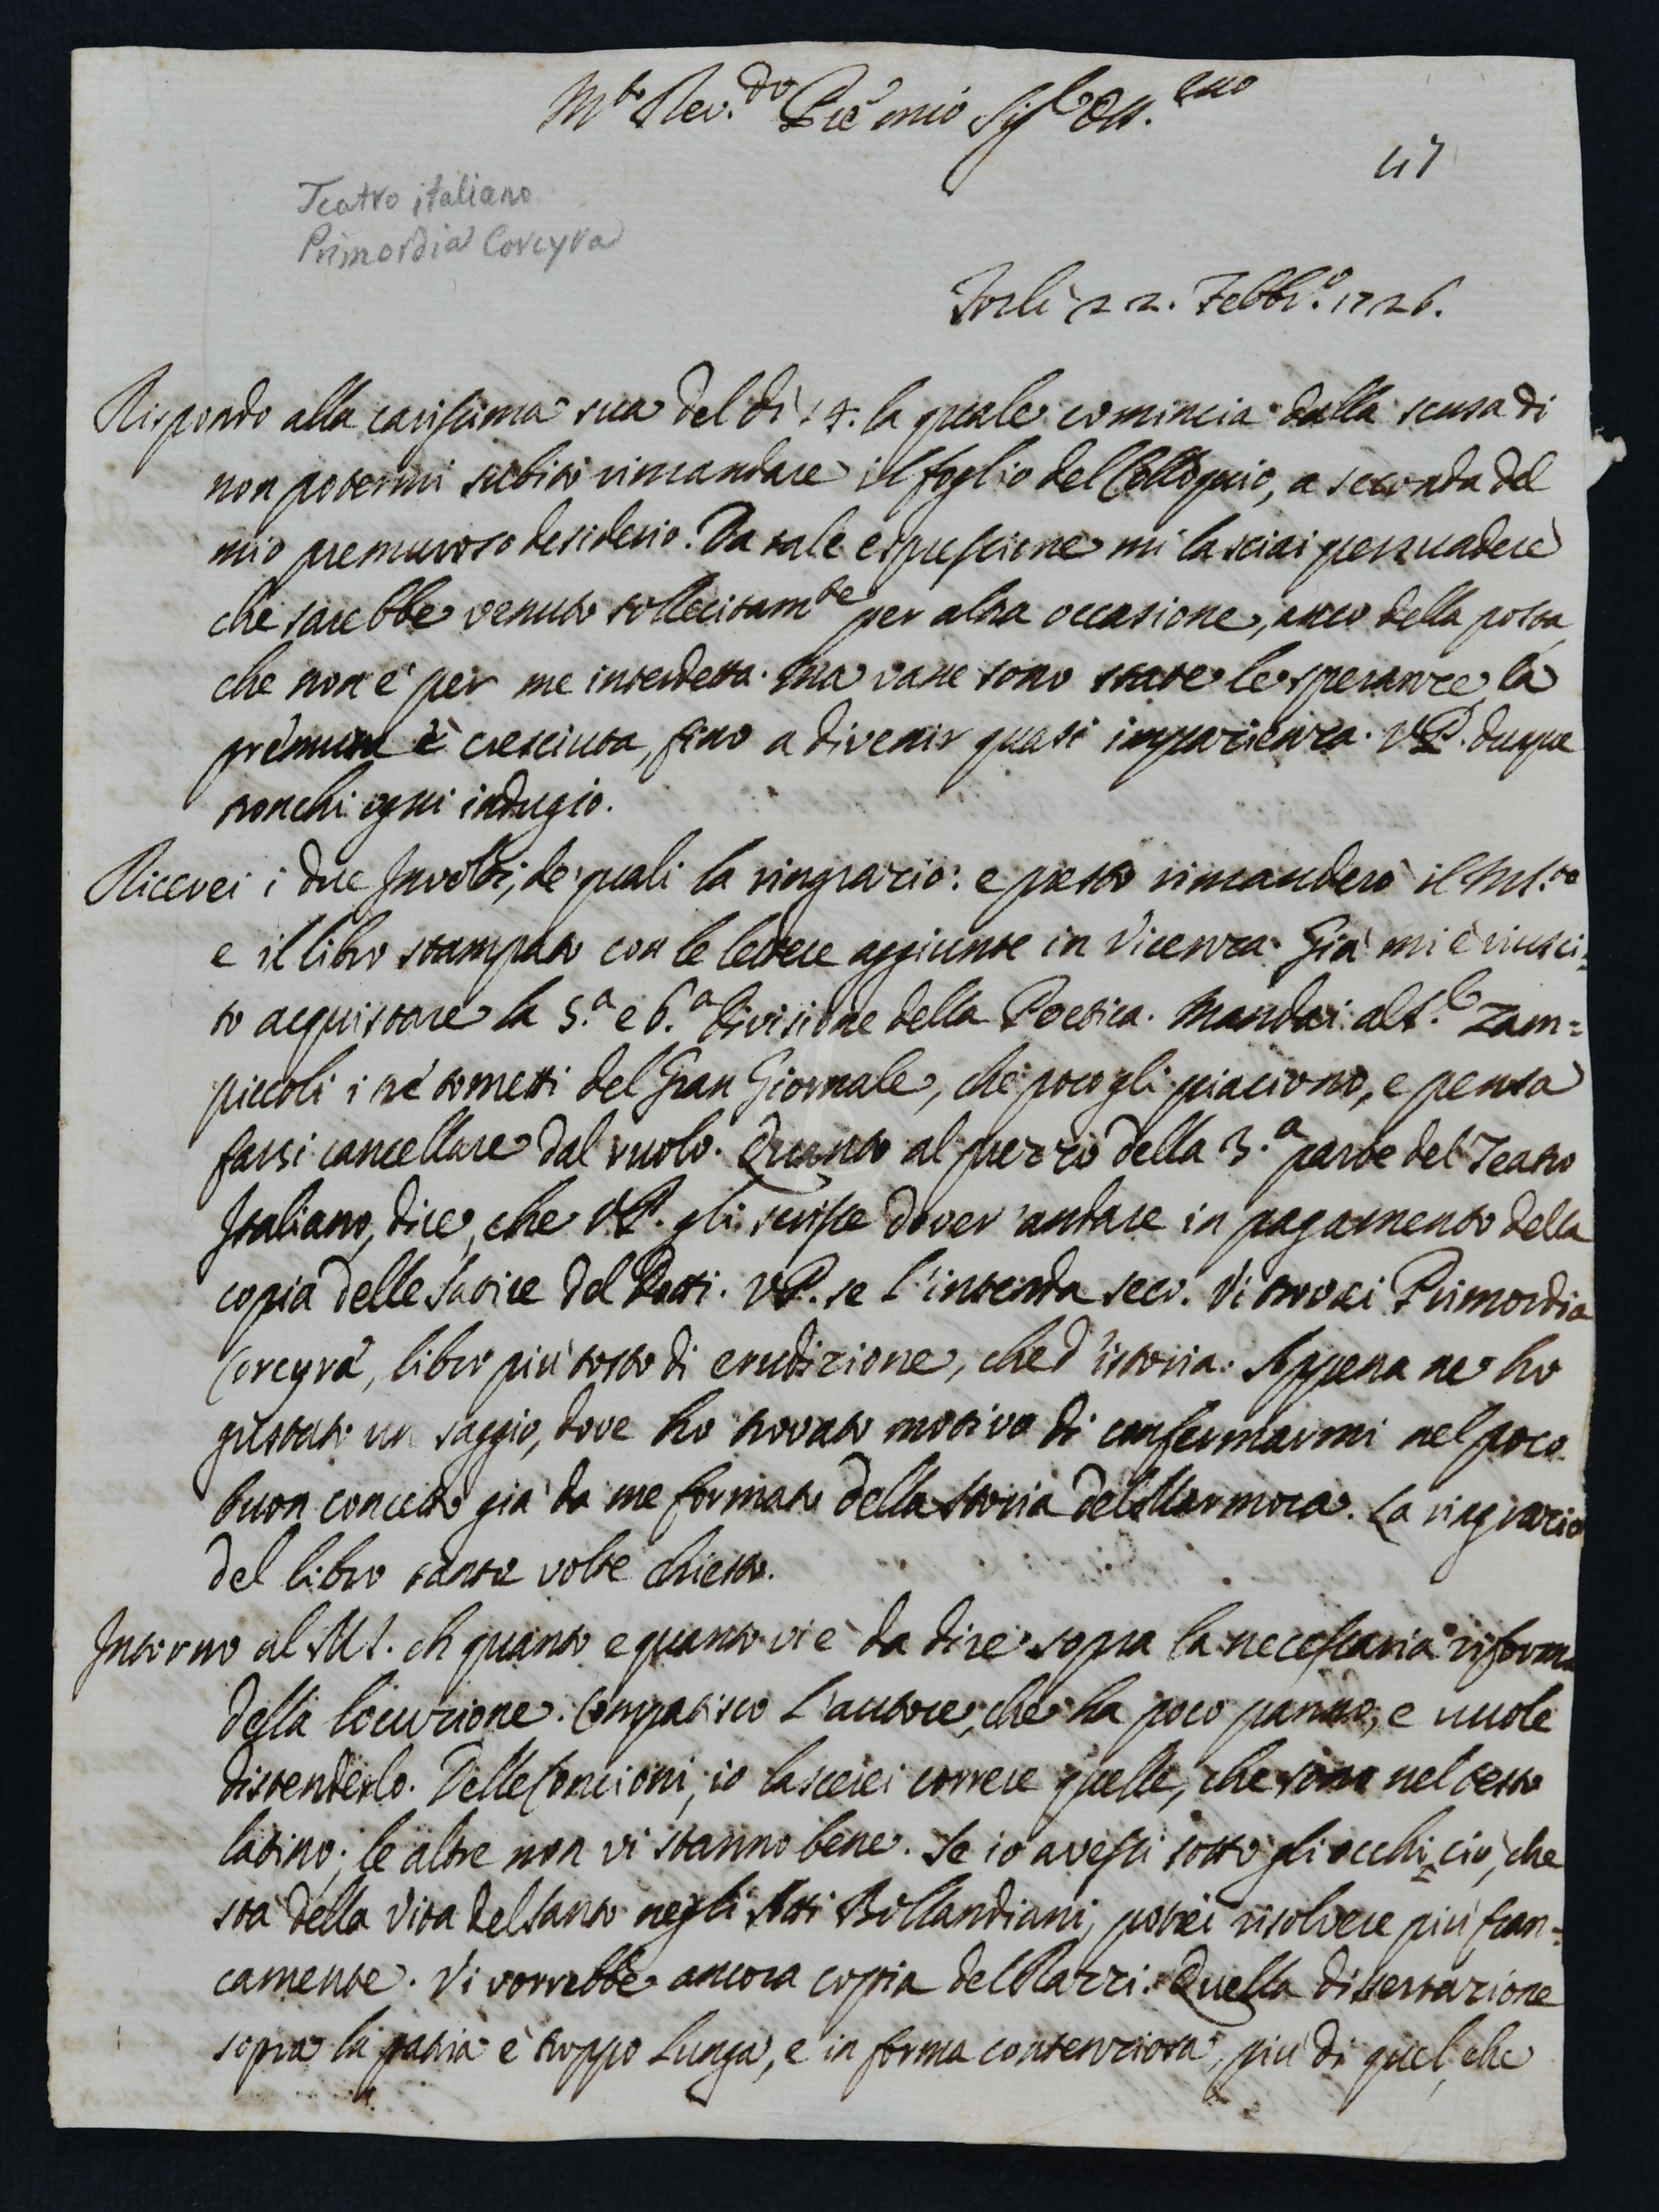 M.to Rev.do Prẽ mio Sig.r Oss.mo
47
Teatro italiano
Primordia Corcyra
Forlì 22. Febbr.o 1726.
Rispondo alla carissima sua del dì 14. la quale comincia dalla scusa di
non potermi subito rimandare il foglio del Colloquio, a seconda del
mio premuroso desiderio. Da tale espressione mi lasciai persuadere
che sarebbe venuto sollecitam.te per altra occasione, anco della posta,
che non è per me interdetta. Ma vane sono state le speranze la
premura è cresciuta, fino a divenir quasi impazienza. V.P. dunque
tronchi ogni indugio.
Ricevei i due Involti, de' quali la ringrazio: e presto rimanderò il Ms.to
e il libro stampato con le lettere aggiunte in Vicenza. Già mi è riusci=
to acquistare la 5.a e 6.a divisione della Poetica. Mandai al S.r Zam=
piccoli i trè tometti del Gran Giornale, che poco gli piaciono, e pensa
farsi cancellare dal ruolo. Quanto al prezzo della 3.a parte del Teatro
Italiano, dice, che V.P. gli scrisse dover' andare in pagamento della
copia delle Satire del Dotti. V.P. se l'intenda seco. Vi trovai Primordia
Corcyræ, libro più tosto di erudizione, che d'istoria. Appena ne ho
gustato un saggio, dove ho trovato motivo di confermarmi nel poco
buon concetto già da me formato della storia del Marmora. La ringrazio
del libro tante volte chiesto.
Intorno al MS. oh quanto e quanto vi è da dire sopra la necessaria riforma
della locuzione. Compatisco l'autore, che ha poco panno, e vuole
distenderlo. Delle Concioni, io lascerei correre quelle, che sono nel testo
latino; le altre non vi stanno bene. Se io avessi sotto gli occhi ciò, che
sta della Vita del Santo negli Atti Bollandiani, potrei risolvere più fran=
camente. Vi vorrebbe ancora copia del Razzi. Quella dissertazione
sopra la patria è troppo lunga, e in forma contenziosa, più di quel, che